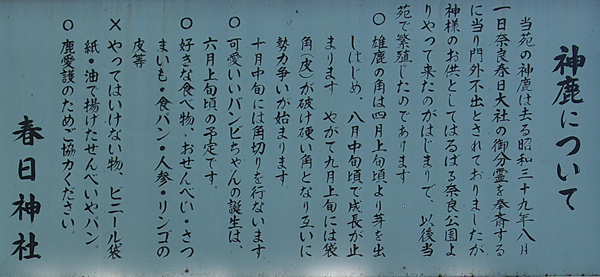 神鹿について
当苑の神鹿は去る昭和三十九年八月
一日奈良春日大社の御分霊を奉斎する
に当り門外不出とされておりましたが
神様のお供としてはるばる奈良公園よ
りやって来たのがはじまりで、以後当
苑で繁殖したのであります
○ 雄鹿の角は四月上旬頃より芽を出
しはじめ、八月中旬頃で成長が止
まります やがて九月上旬には袋
角(皮)が破け硬い角となり互いに
勢力争いが始まります
十月中旬には角切りを行ないます
○ 可愛いいバンビちゃんの誕生は、
六月上旬頃の予定です。
○ 好きな食べ物、おせんべい・さつ
まいも・食パン・人参・リンゴの
皮等
× やってはいけない物、ビニール袋
紙・油で揚げたせんべいやパン、
○ 鹿愛護のためご協力ください。
春日神社